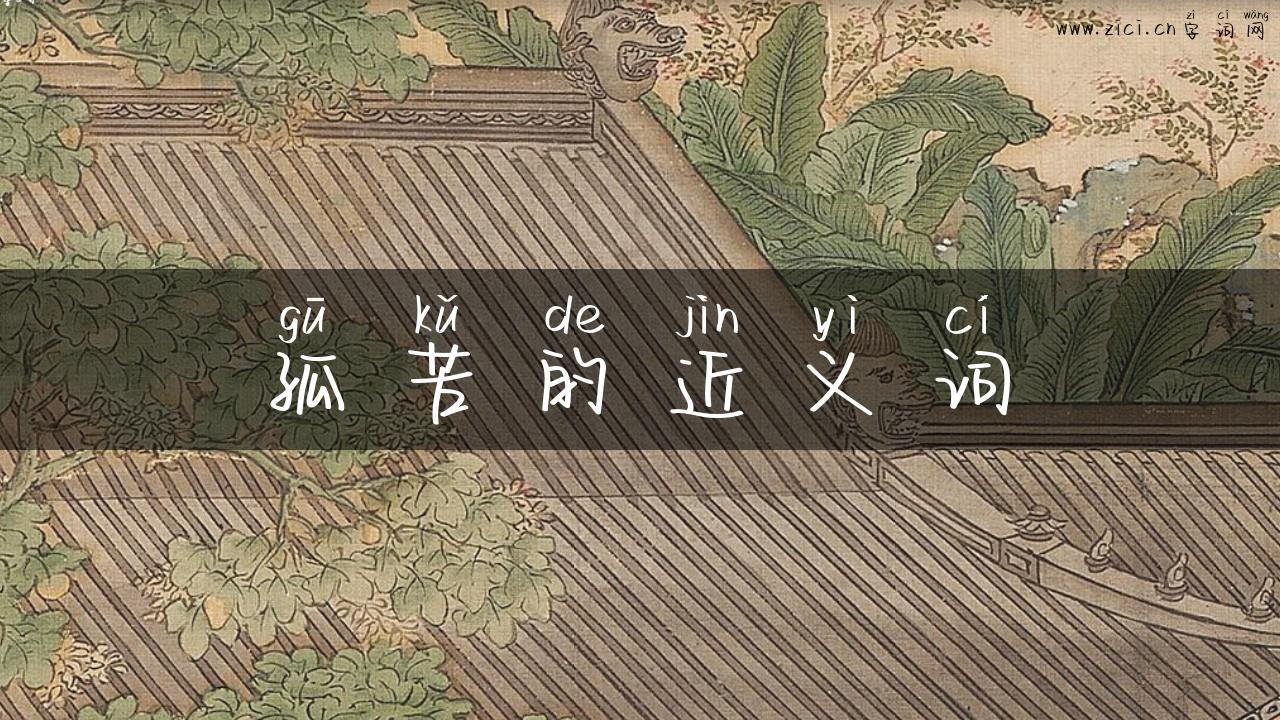 zì cí wǎng
www.zici.cn 字词网
gū kǔ de jìn yì cí
孤苦的近义词